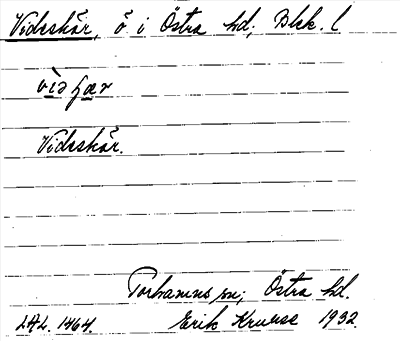 Videskär, ö i Östra hd; Blek. l
Videskär.
Torhamns sn; Östra hd.
LAL. 1464. Erik Kruuse 1932.